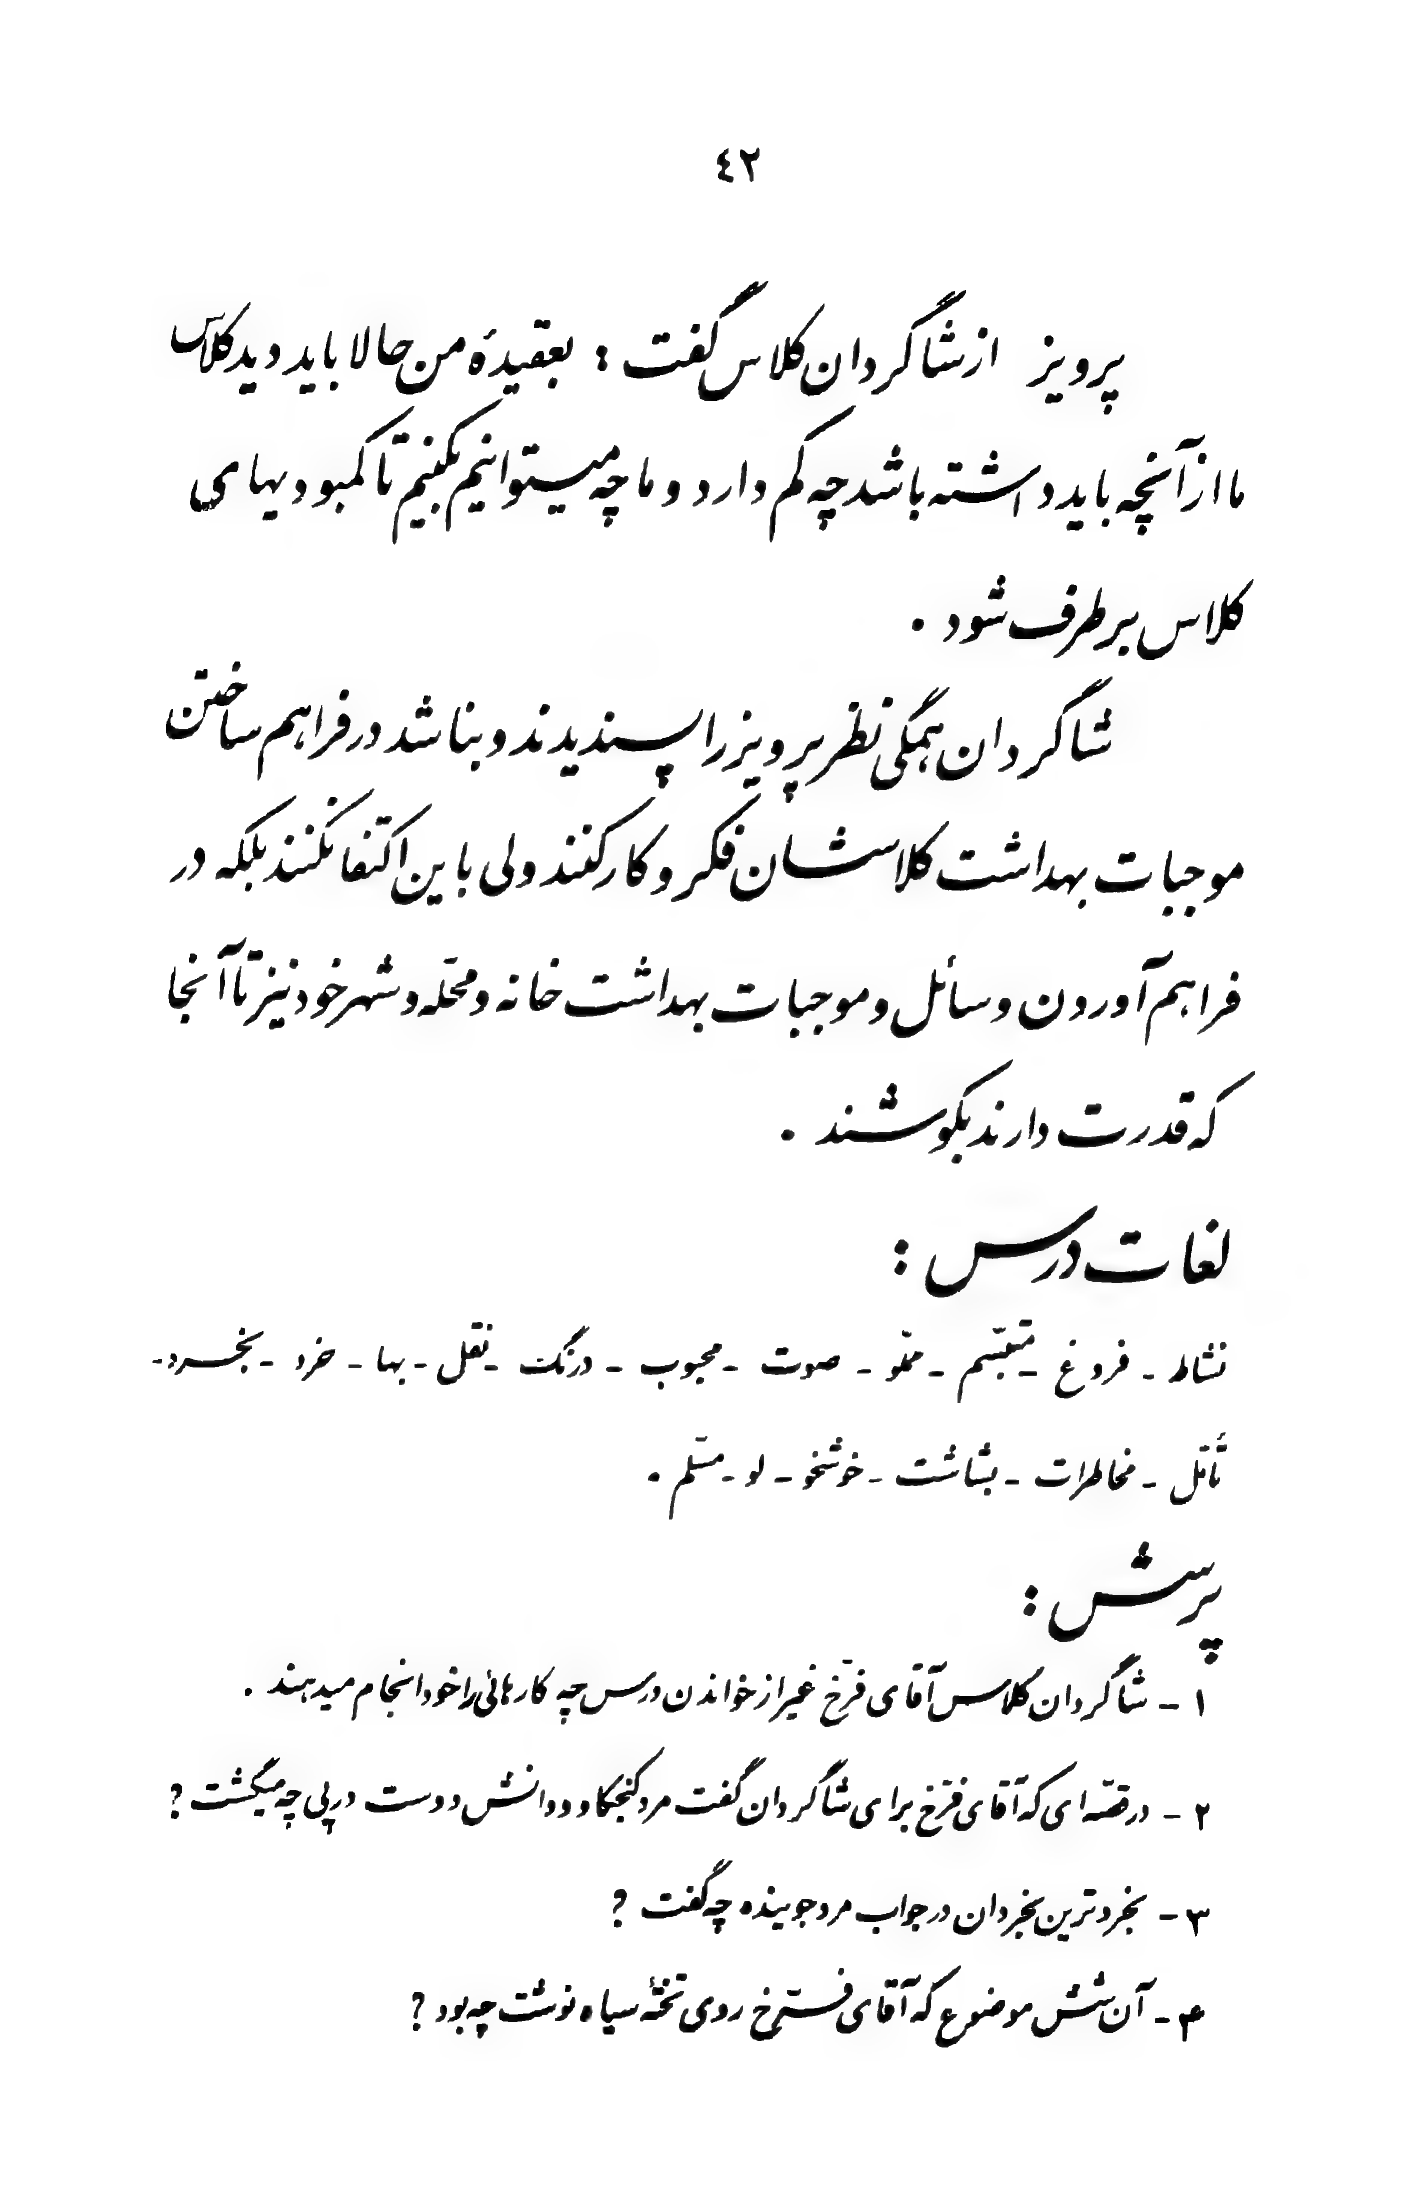 ٤٢
پرویز از شاگردان کلاس گفت : بعقیدهٔ من حالا باید دید کلاس
ما از آنچه باید داشته باشد چه کم دارد و ما چه میتوانیم بکنیم تا کمبودیهای
کلاس برطرف شود .
شاگردان همگی نظر پرویز را پسندیدند و بنا شد در فراهم ساختن
موجبات بهداشت کلاسشان فکر و کار کنند ولی باین اکتفا نکنند بلکه در
فراهم آوردن وسائل و موجبات بهداشت خانه و محلّه و شهر خود نیز تا آنجا
که قدرت دارند بکوشند .
لغات درس :
نشاط - فروغ - متبسّم - مملّو - صوت - محبوب - درنگ - نقل - بها - خرد - بخرد -
تأمّل - مخاطرات - بشاشت - خوشخو - لو - مسلّم .
پرسش :
۱ - شاگردان کلاس آقای فرّخ غیر از خواندن درس چه کارهائی را خود انجام میدهند .
۲ - در قصّه ای که آقای فرّخ برای شاگردان گفت مرد کنجکاو و دانش دوست در پی چه میگشت ؟
۳ - بخردترین بخردان در جواب مرد جوینده چه گفت ؟
۴ - آن شش موضوع که آقای فرّخ روی تختهٔ سیاه نوشت چه بود ؟